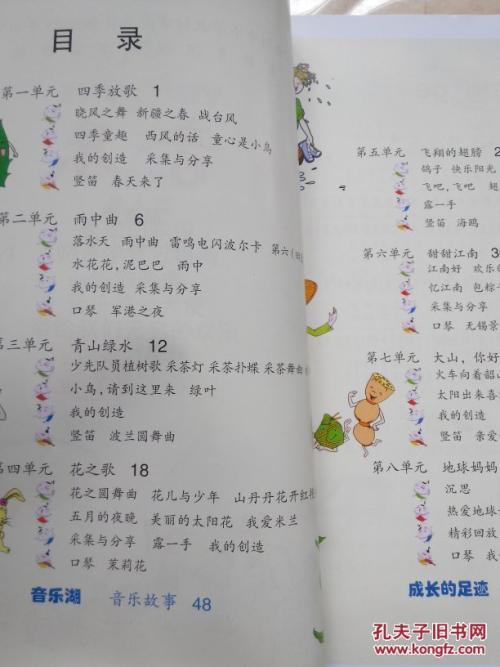 目 录
第一单元 四季放歌 1
晓风之舞 新疆之春 战台风
四季童趣 西风的话 童心是小鸟
我的创造 采集与分享
竖笛 春天来了
第二单元 雨中曲 6
落水天 雨中曲 雷鸣电闪波尔卡 第六(
水花花,泥巴巴 雨中
我的创造 采集与分享
口琴 军港之夜
第三单元 青山绿水 12
少先队员植树歌 采茶灯 采茶扑蝶 采茶舞曲
小鸟,请到这里来 绿叶
我的创造
竖笛 波兰圆舞曲
第四单元 花之歌 18
花之圆舞曲 花儿与少年 山丹丹花开红
五月的夜晚 美丽的太阳花 我爱米兰
采集与分享 露一手 我的创造
口琴 茉莉花
音乐湖 音乐故事 48
第五单元 飞翔的翅膀 2
鸽子 快乐阳光
飞吧,飞吧
露一手
竖笛 海鸥
第六单元 甜甜江南 3
江南好 欢乐
忆江南 包粽
采集与分享
口琴 无锡景
第七单元 大山,你好
火车向着韶山
太阳出来喜
我的创造
竖笛 亲爱
第八单元 地球妈妈
沉思
热爱地球
精彩回放
口琴 我
成长的足迹
孔夫子旧书网
KFZ.CN